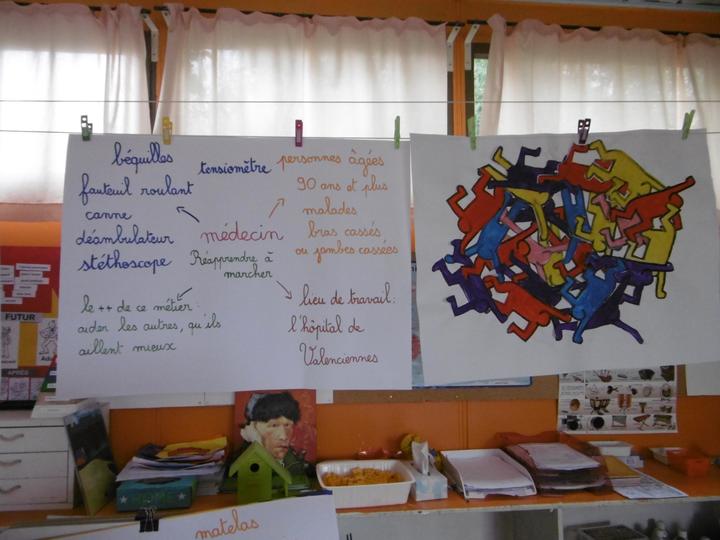 béquilles
tensiomètre
fauteuil roulant
canne
déambulateur
stéthoscope
personnes âgées
90 ans et plus
malades
bras cassés
ou jambes cassées
médecin
Réapprendre à
marcher
le ++ de ce métier :
aider les autres, qu'ils
aillent mieux
lieu de travail :
l'hôpital de
Valenciennes
FUTUR
APRÈS
matelas